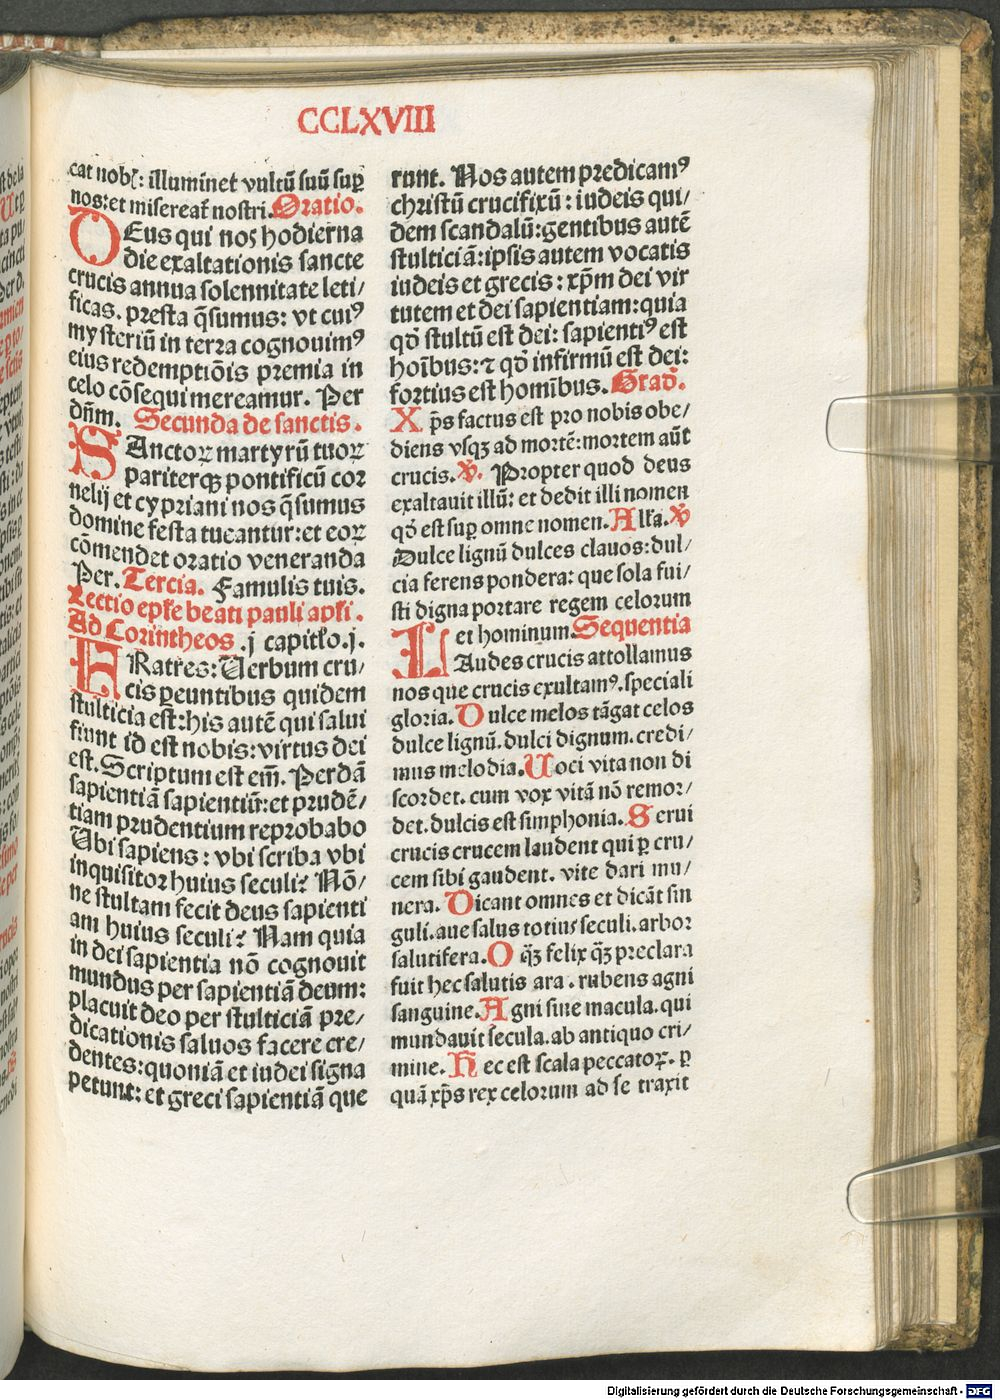 CCLXVIII
cat nobꝭ: illuminet vultū suū suꝑ
nos: et misereat᷑ nostri. Oratio.
DEus qui nos hodierna
die exaltationis sancte
crucis annua solennitate leti/
ficas. presta q̄sumus: vt cuiꝰ
mysteriū in terra cognouimꝰ
eius redemptiōis premia in
celo cōsequi mereamur. Per
dn̄m. Secunda de sanctis.
SAnctoꝝ martyrū tuoꝝ
pariterqꝫ pontificū cor
nelij et cypriani nos q̄sumus
domine festa tueantur: et eoꝝ
cōmendet oratio veneranda
Per. Tercia. Famulis tuis.
Lectio epl̄e beati pauli apl̄i.
Ad Corintheos .j capitl̄o .j.
FRatres: Uerbum cru/
cis ꝑeuntibus quidem
stulticia est: his autē qui salui
fiunt id est nobis: virtus dei
est. Scriptum est em̄. Perdā
sapientiā sapientiū: et prudē/
tiam prudentium reprobabo
Ubi sapiens: vbi scriba vbi
inquisitoꝛ huius seculi? Nō/
ne stultam fecit deus sapienti
am huius seculi? Nam quia
in dei sapientia nō cognouit
mundus per sapientiā deum:
placuit deo per stulticiā pre/
dicationis saluos facere cre/
dentes: quoniā et iudei signa
petunt: et greci sapientiā que
runt. Nos autem predicamꝰ
christū crucifixū: iudeis qui/
dem scandalū: gentibus autē
stulticiā: ipsis autem vocatis
iudeis et grecis: xp̄m dei vir
tutem et dei sapientiam: quia
qd̄ stultū est dei: sapientiꝰ est
hoībus: ⁊ qd̄ infirmū est dei:
fortius est homībus. Grad̄.
Xp̄s factus est pro nobis obe/
diens vsqꝫ ad mortē: mortem aūt
crucis. ℣. Propter quod deus
exaltauit illū: et dedit illi nomen
qd̄ est suꝑ omne nomen. All̄a. ℣
Dulce lignū dulces clauos: dul/
cia ferens pondera: que sola fui/
sti digna portare regem celorum
et hominum. Sequentia
LAudes crucis attollamus
nos que crucis exultamꝰ. speciali
gloria. Dulce melos tāgat celos
dulce lignū. dulci dignum. credi/
mus melodia. Uoci vita non di
scordet. cum vox vitā nō remor/
det. dulcis est simphonia. Serui
crucis crucem laudent qui ꝑ cru/
cem sibi gaudent. vite dari mu/
nera. Dicant omnes et dicāt sin
guli. aue salus totiꝰ seculi. arbor
salutifera. O qꝫ̄ felix qꝫ̄ preclara
fuit hec salutis ara. rubens agni
sanguine. Agni sine macula. qui
mundauit secula. ab antiquo cri/
mine. Hec est scala peccatoꝝ. ꝑ
quā xp̄s rex celorum ad se traxit
Digitalisierung gefördert durch die Deutsche Forschungsgemeinschaft - DFG